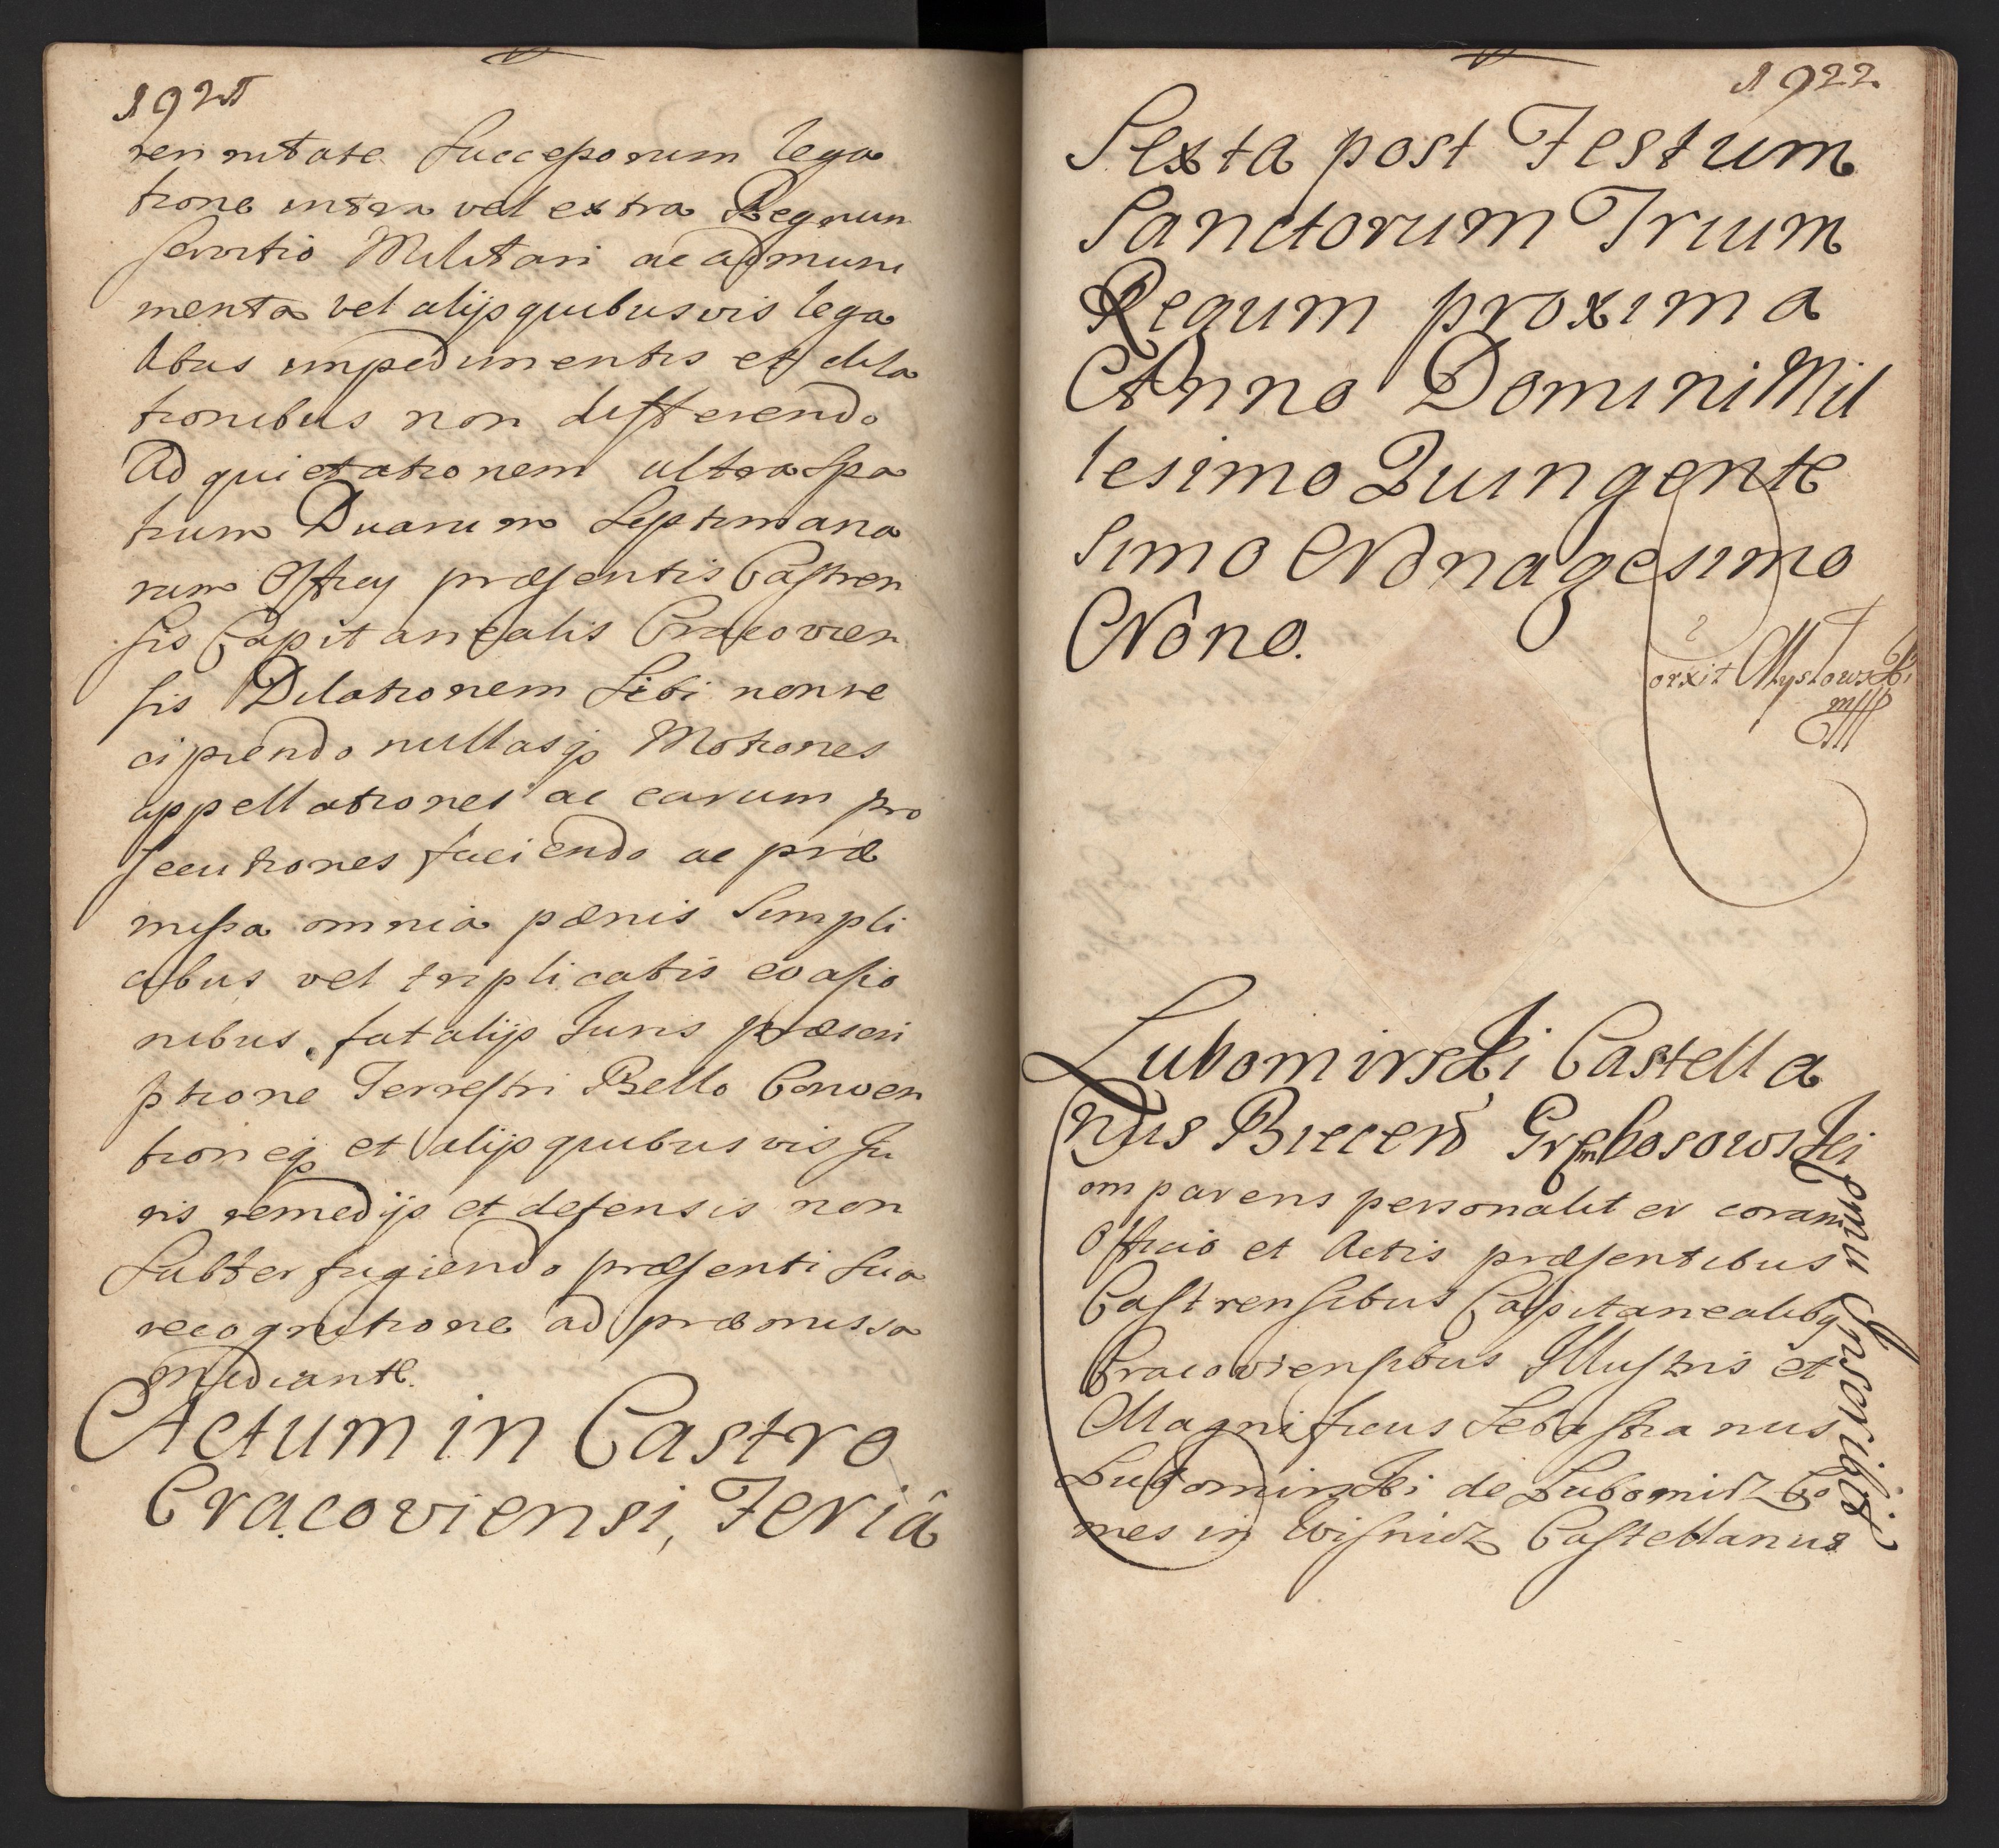 1921
rennitate Succeſsorum lega
tione intra vel extra Regnum
ſervitio Militari ac admuni
menta vel alijs quibusvis lega
libus impedimentis et dila
tionibus non differendo
Ad quietationem ultra Spa
tium Duarum Septimana
rum Officij præſentis Caſtren
ſis Capitanealis Cracovien
ſis Dilationem Sibi non re
cipiendo nullasq; Motiones
appellationes ac earum pro
ſecutiones faciendo ac præ
miſsa omnia pænis Simpli
cibus vel triplicatis evaſio
nibus, fatalijs Juris præscri
ptione Terreſtri Bello Conven
tioneq; et alijs quibusvis Ju
ris remedijs et defensis non
Subterfugiendo præſenti Sua
recognitione ad præmissa
mediante.
Actum in Castro
Cracoviensi, Feriâ
1922
Sexta post Festum
Sanctorum Trium
Regum proxima
Anno Domini Mil
lesimo Quingente
simo Nonagesimo
Nono.
orxit Mystowski
mpp
Lubomirski Castella
nus Biecen Grembosowski
omparens personaliter coram
Officio et Actis præſentibus
Caſtrenſibus Capitanealibq
Cracovienſibus Illuſtris et
Magnificus Sebaſtianus
Lubomirski de Lubomirz Co
mes in Wiſnicz Caſtellanus
Ipmu Inscribit